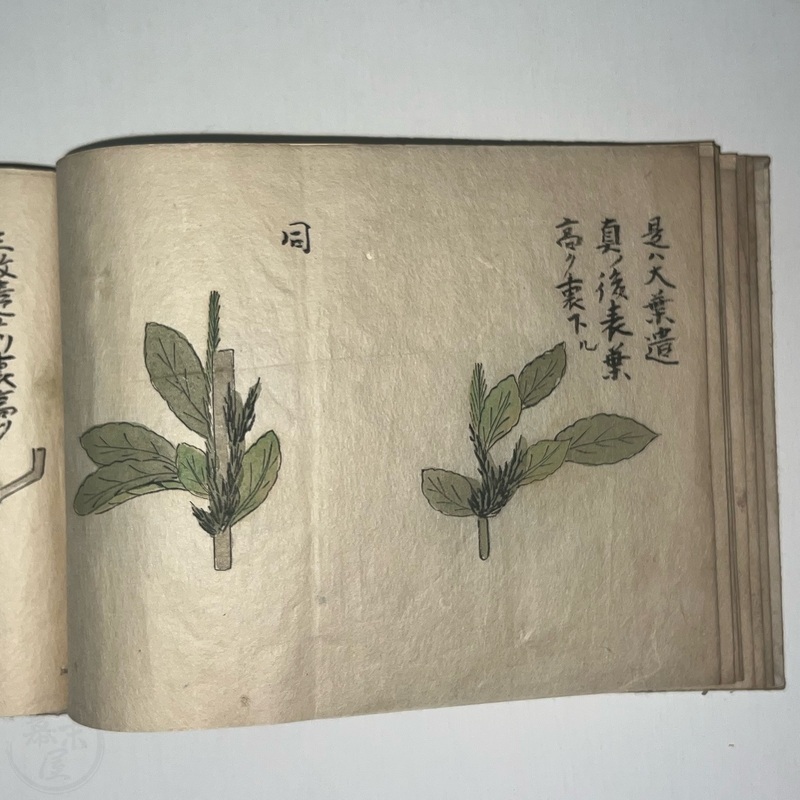 是ハ大葉遣
真ノ後表葉
高ク裏下ル
同